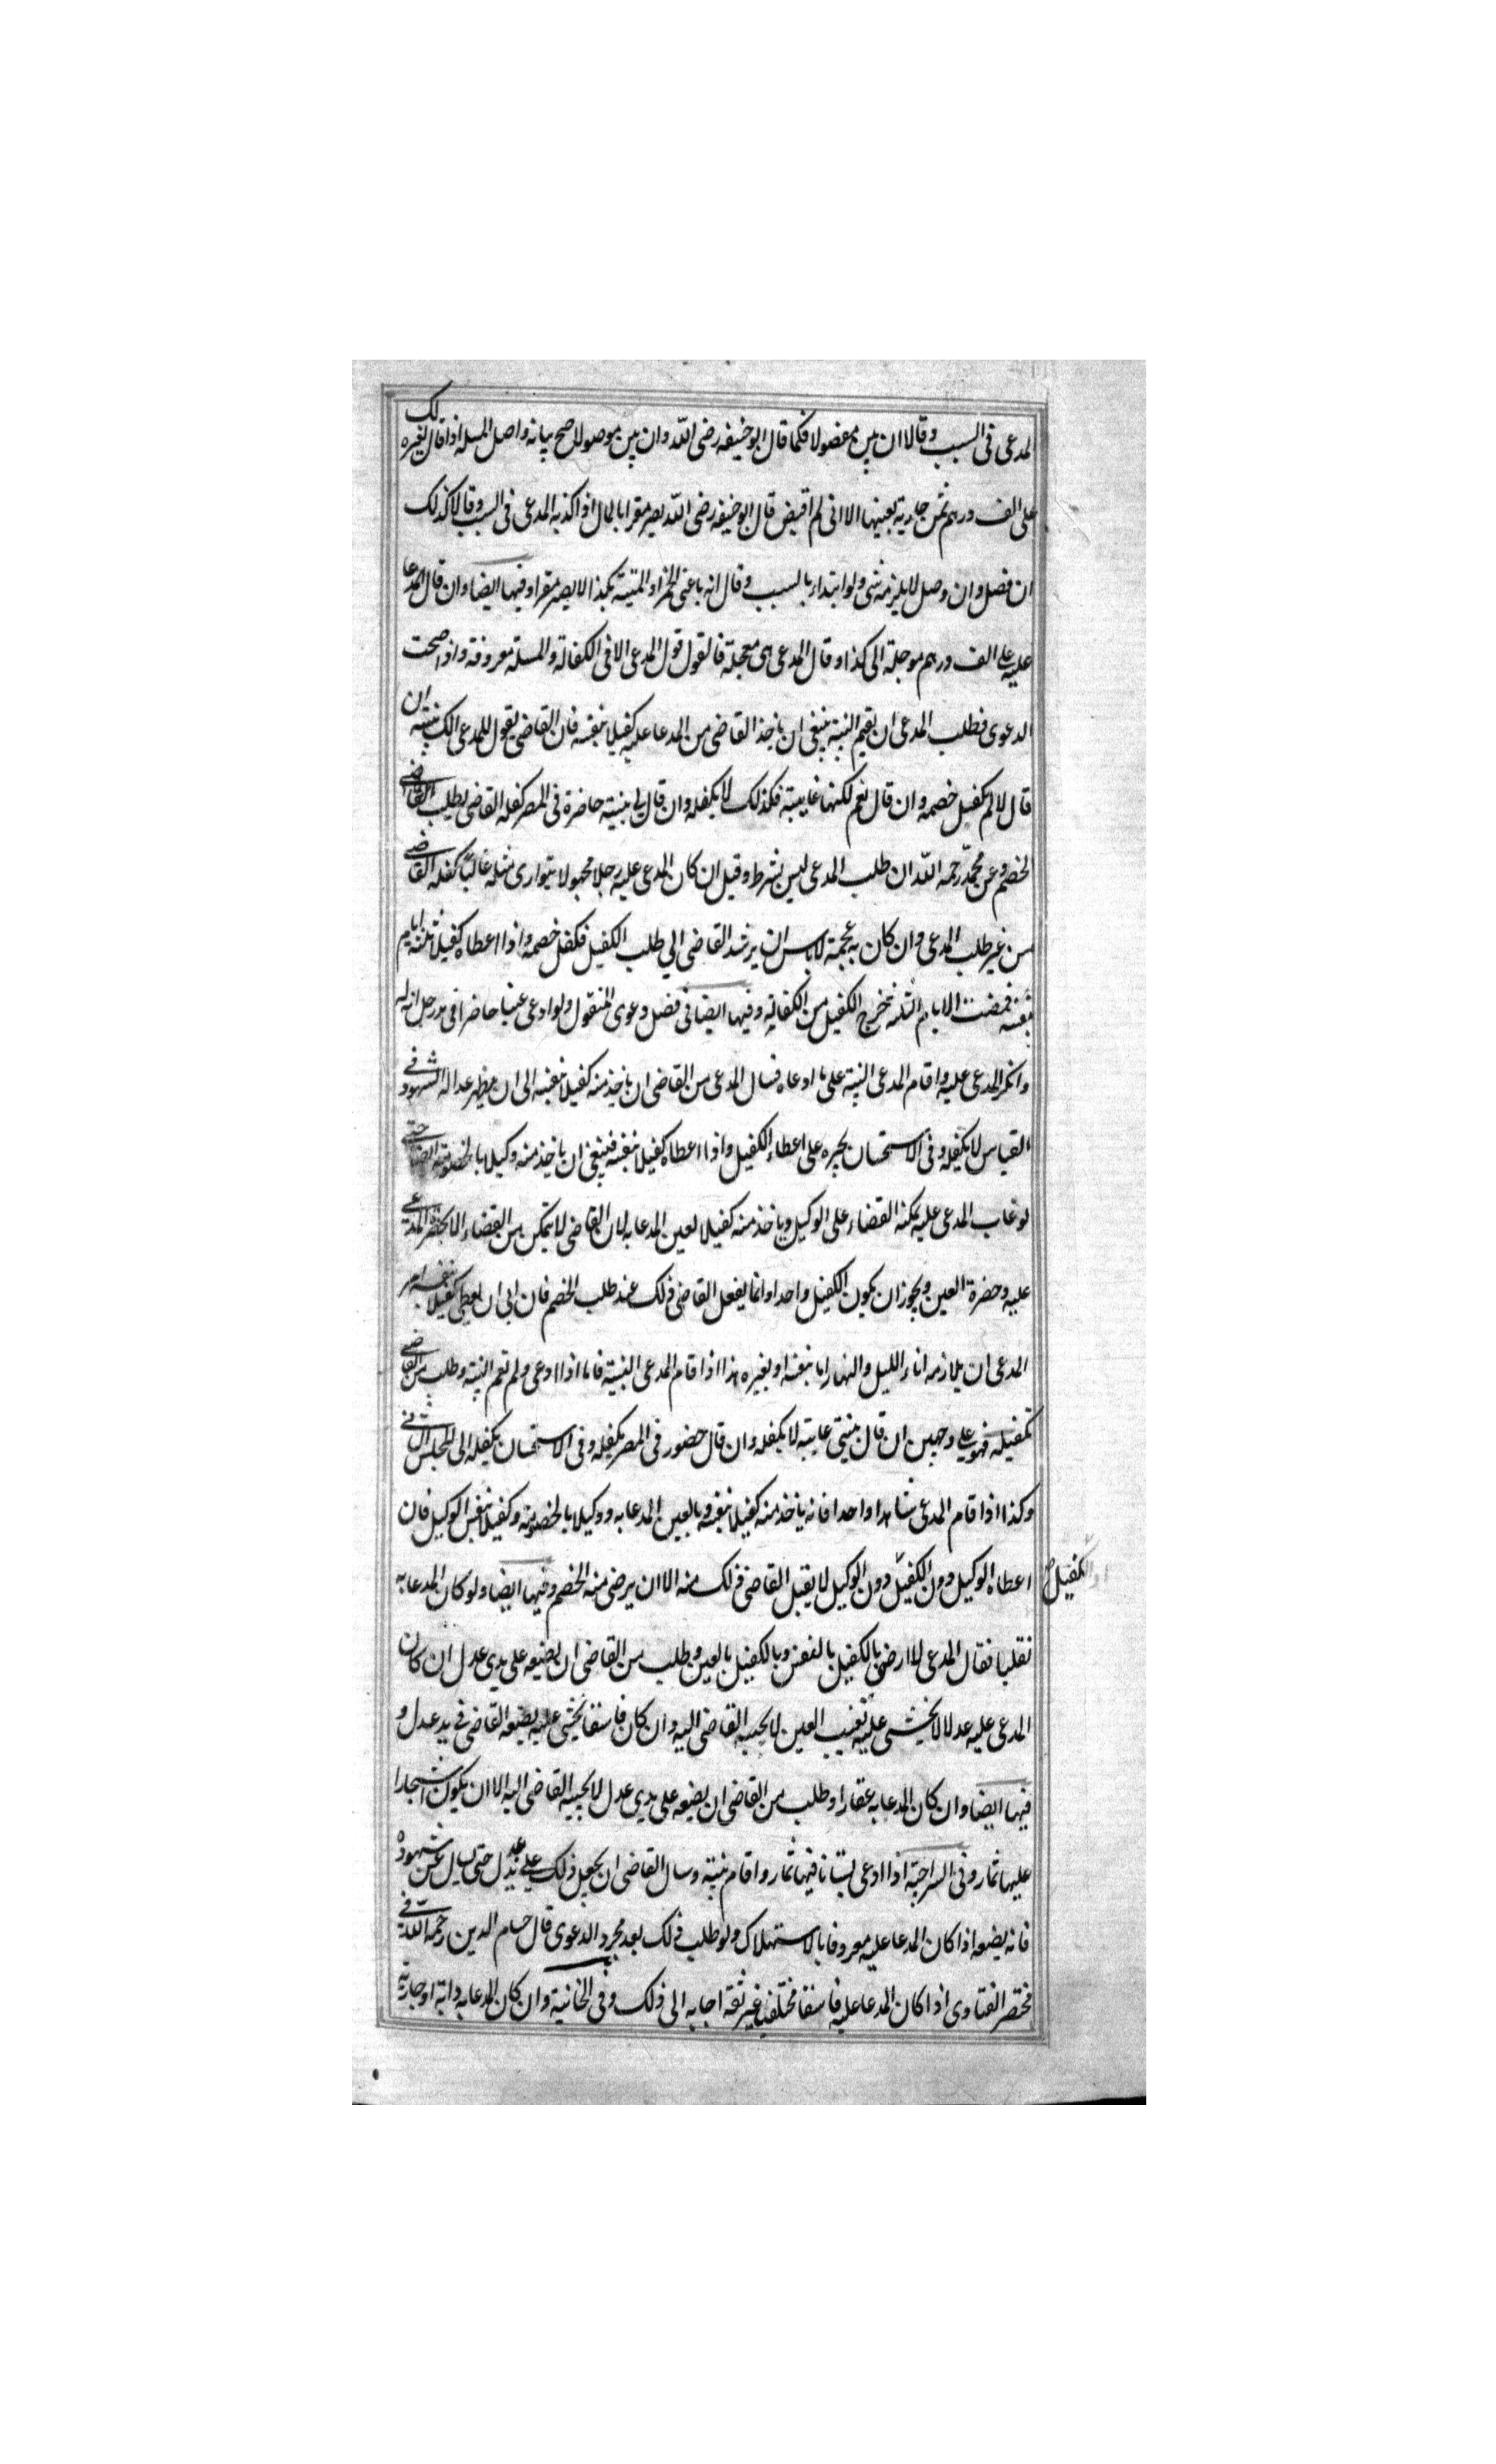 المدعى فى السبب وقالا ان بين مفصولا فكما قال ابو حنيفه رضى الله وان بين موصولا صح بيانه واصل المسله اذا قال لغيره لك
على الف درهم ثمن جارية بعينها الا انى لم اقبض قال ابو حنيفه رضى الله يصير مقرا بالمال اذا كذبه المدعى فى السبب وقالا كذلك
ان فصل وان وصل لا يلزمه شى ولو ابتدا بالسبب وقال انه باعنى الخمر او الميتة بكذا لا يصير مقرا وفيها ايضا وان قال المدعا
عليه على الف درهم موجلة الى كذا وقال المدعى هى معجلة فالقول قول المدعى الا فى الكفالة والمسلة معروفة واذا صحت
الدعوى فطلب المدعى ان يقيم البينة ينبغى ان ياخذ القاضى من المدعا عليه كفيلا بنفسه فان القاضى يقول للمدعى الك بينة ان
قال لا لم يكفيل خصمه وان قال نعم لكنها غايبة فكذلك لا يكفله وان قال لى بينة حاضرة فى المصر كفله القاضى بطلب القاضى
الخصم وعن محمد رحمه الله ان طلب المدعى ليس بشرط وقيل ان كان المدعى عليه رجلا مجهولا يتوارى مثله غالبا كفله القاضى
من غير طلب المدعى وان كان به عجمة لا باس ان يرشد القاضى الى طلب الكفيل فكفل خصمه واذا اعطاه كفيلا ثلثه ايام
بنفسه فمضت الايام الثلثه يخرج الكفيل من الكفالة وفيها ايضا فى فصل دعوى المنقول ولو ادعى عينا حاضرا فى يد رجل انه له
وانكر المدعى عليه واقام المدعى البينة على ما ادعاه فسال المدعى من القاضى ان ياخذ منه كفيلا بنفسه الى ان يظهر عدالة الشهود فى
القياس لا يكفله وفى الاستحسان يجبره على اعطاء الكفيل واذا اعطاه كفيلا بنفسه فينبغى ان ياخذ منه وكيلا بالخصومة ايضا حتى
لو غاب المدعى عليه يمكنه القضاء على الوكيل وياخذ منه كفيلا لعين المدعا به لان القاضى لا يتمكن من القضاء الا بحضرة المدعى
عليه وحضرة العين ويجوز ان يكون الكفيل واحدا وانما يفعل القاضى ذلك عند طلب الخصم فان ابى ان يعطى كفيلا بنفسه امر
المدعى ان يلازمه اناء الليل والنهار اما بنفسه او بغيره هذا اذا اقام المدعى البينة فاما اذا ادعى ولم تقم البينة وطلب من القاضى
تكفيله فهو على وجهين ان قال بينتى غايبة لا يكفله وان قال حضور فى المصر يكفله وفى الاستحسان يكفله الى المجلس الثانى
وكذا اذا اقام المدعى شاهدا واحدا فانه ياخذ منه كفيلا بنفسه وبالعين المدعا به ووكيلا بالخصومة وكفيلا بنفس الوكيل فان
اعطاه الوكيل دون الكفيل دون الوكيل لا يقبل القاضى ذلك منه الا ان يرضى منه الخصم وفيها ايضا ولو كان المدعا به
او الكفيل صح
نقليا فقال المدعى لا ارضى بالكفيل بالنفس وبالكفيل بالعين وطلب من القاضى ان يضعه على يدى عدل ان كان
المدعى عليه عدلا لا يخشى عليه تغييب العين لا يجيبه القاضى اليه وان كان فاسقا يخشى عليه يضعه القاضى فى يد عدل و
فيها ايضا وان كان المدعا به عقارا وطلب من القاضى ان يضعه على يدى عدل لا يجيبه القاضى اليه الا ان يكون اشجارا
عليها ثمار وفى السراجية اذا ادعى بستانا فيها ثمار واقام بينة وسال القاضى ان يجعل ذلك على يد عدل حتى يسال عن شهوده
فانه يضعه اذا كان المدعا عليه معروفا بالاستهلاك ولو طلب ذلك بعد مجرد الدعوى قال حسام الدين رحمه الله فى
مختصر الفتاوى اذا كان المدعا عليه فاسقا مختلفيا غير ثقة اجابه الى ذلك وفى الخانية وان كان المدعا به دابة او جارية